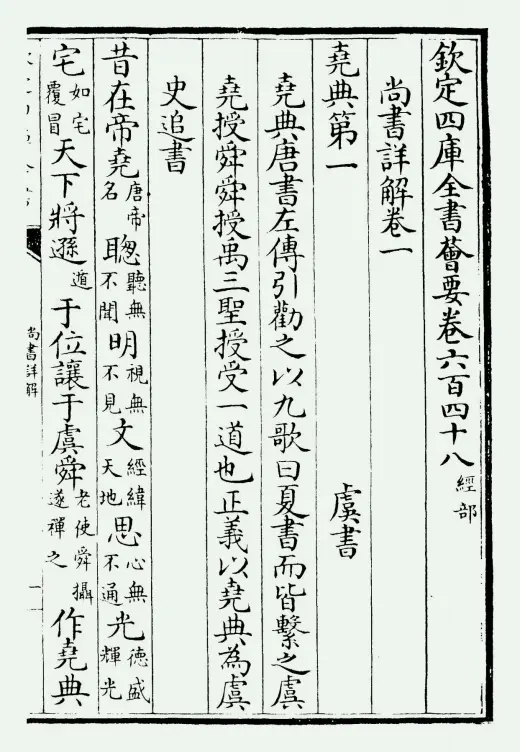 欽定四庫全書薈要卷六百四十八經部
尚書詳解卷一
堯典第一 虞書
堯典唐書左傳引勸之以九歌曰夏書而皆繫之虞
堯授舜舜授禹三聖授受一道也正義以堯典為虞
史追書
昔在帝堯唐帝名聰聽無不聞明視無不見文經緯天地思心無不通光德盛輝光
宅如宅覆冒天下將遜遁于位讓于虞舜老使舜攝遂禪之作堯典
尚書詳解
一